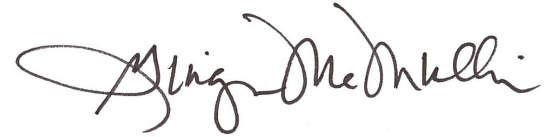 Ginger McMullin